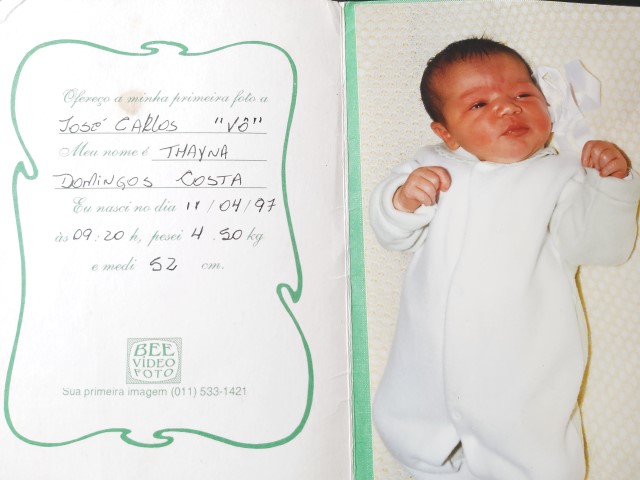 Ofereço a minha primeira foto a
JOSÉ CARLOS "VÔ"
Meu nome é THAYNA
DOMINGOS COSTA
Eu nasci no dia 11/04/97
às 09:20 h, pesei 4.50 kg
e medi 52 cm.
BEE
VÍDEO
FOTO
Sua primeira imagem (011) 533-1421